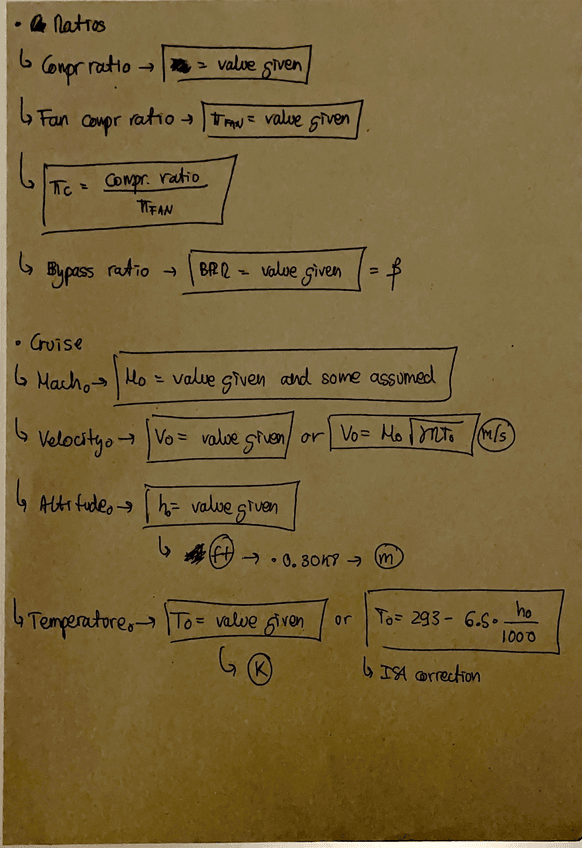 • Ratios
↳ Compr ratio → = value given
↳ Fan compr ratio → π_FAN = value given
↳ π_C = compr. ratio / π_FAN
↳ Bypass ratio → BPR = value given = β
• Cruise
↳ Mach₀ → M₀ = value given and some assumed
↳ Velocity₀ → V₀ = value given or V₀ = M₀ √γRT₀ m/s
↳ Altitude₀ → h₀ = value given
↳ ft → · 0.3048 → m
↳ Temperature₀ → T₀ = value given or T₀ = 293 - 6.5 · h₀ / 1000
↳ K ↳ ISA correction